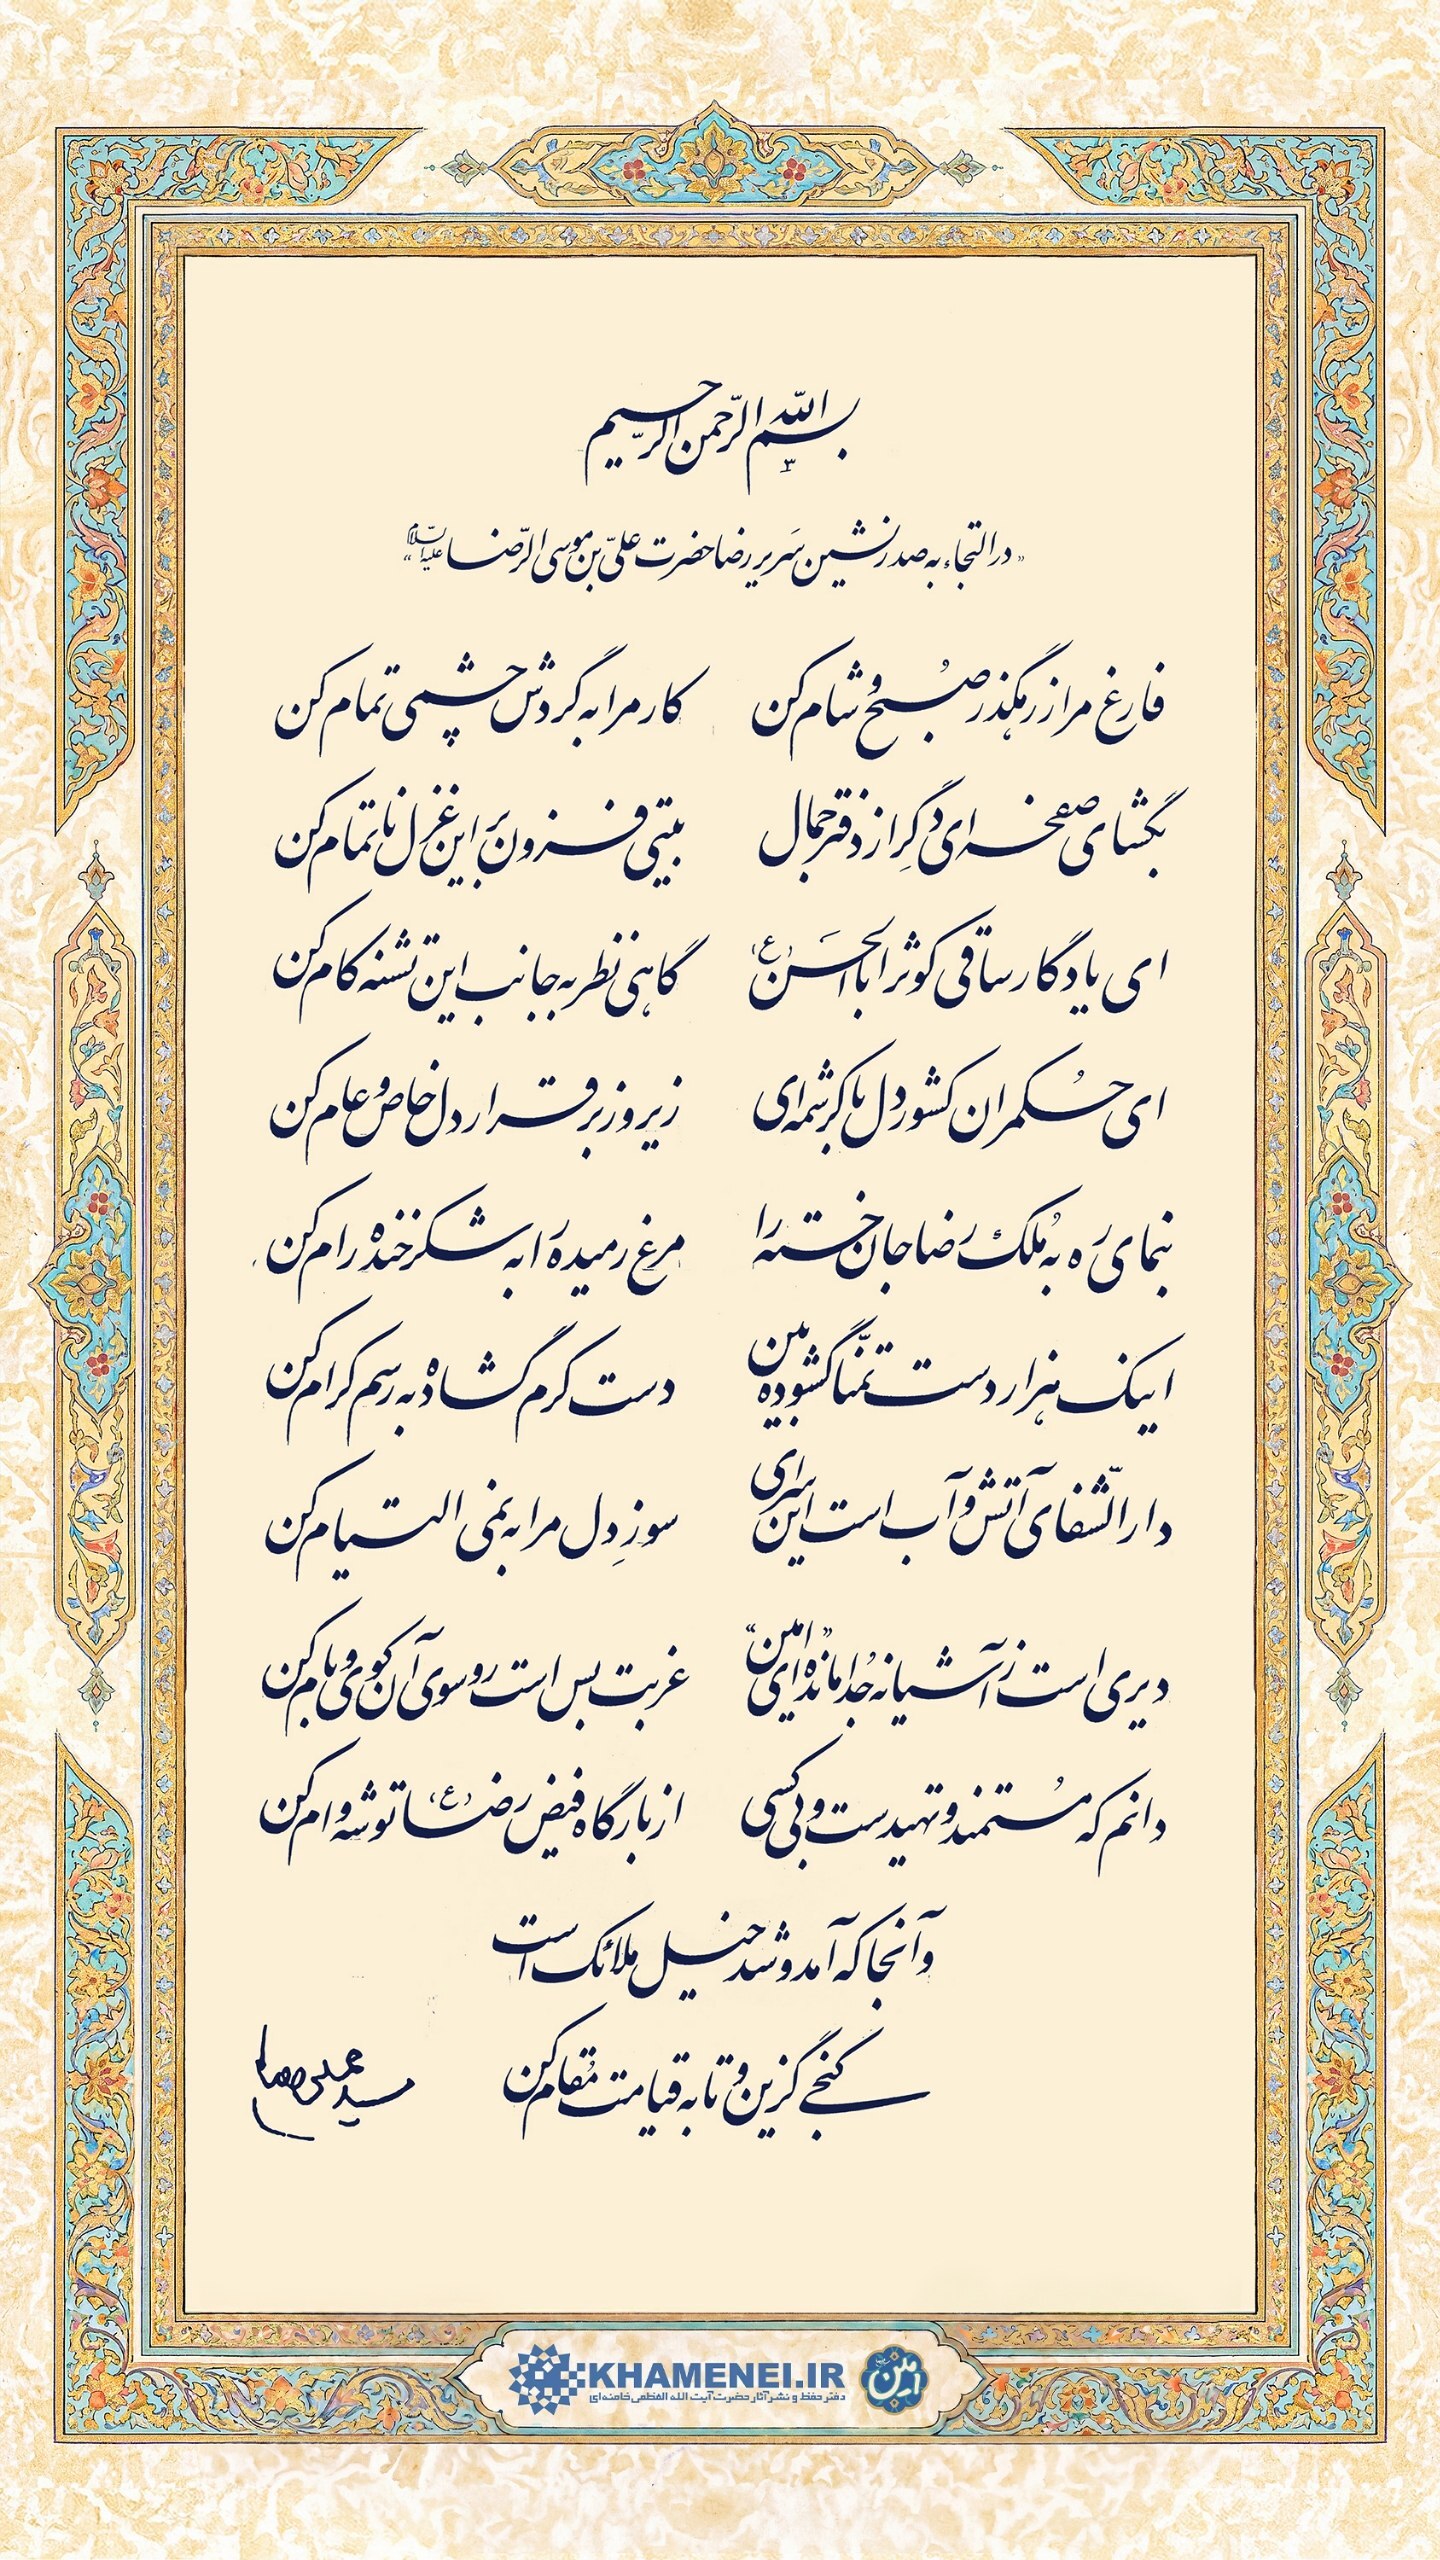 بسم الله الرّحمن الرّحیم
«در التجاء به صدرنشین سَریر رضا حضرت علیّ بن موسی الرّضا علیه‌السّلام»
فارغ مرا ز رهگذر صُبح و شام کن کار مرا به گردش چشمی تمام کن
بگشای صفحه‌ای دگرِ از دفتر جمال بیتی فزون بر این غزل ناتمام کن
ای یادگار ساقی کوثر اباالحسَن(ع) گاهی نظر به جانب این تشنه کام کن
ای حُکمران کشور دل با کرشمه‌ای زیر و زبر قرار دل خاص و عام کن
بنمای ره به مُلک رضا جان خسته را مرغ رمیده را به شکرخنده رام کن
اینک هزار دست تمنّا گشوده بین دست کرم گشاده به رسم کرام کن
دارالشّفای آتش و آب است این سرای سوزِ دل مرا به نمی التیام کن
دیری است ز آشیانه جُدا مانده‌ای «امین» غربت بس است رو سوی آن کوی و بام کن
دانم که مُستمند و تهیدست و بی‌کسی از بارگاه فیض رضا(ع) توشه وام کن
وآنجا که آمد و شد خیل ملائک است
کنجی گزین و تا به قیامت مُقام کن
KHAMENEI.IR
دفتر حفظ و نشر آثار حضرت آیت الله العظمی خامنه‌ای